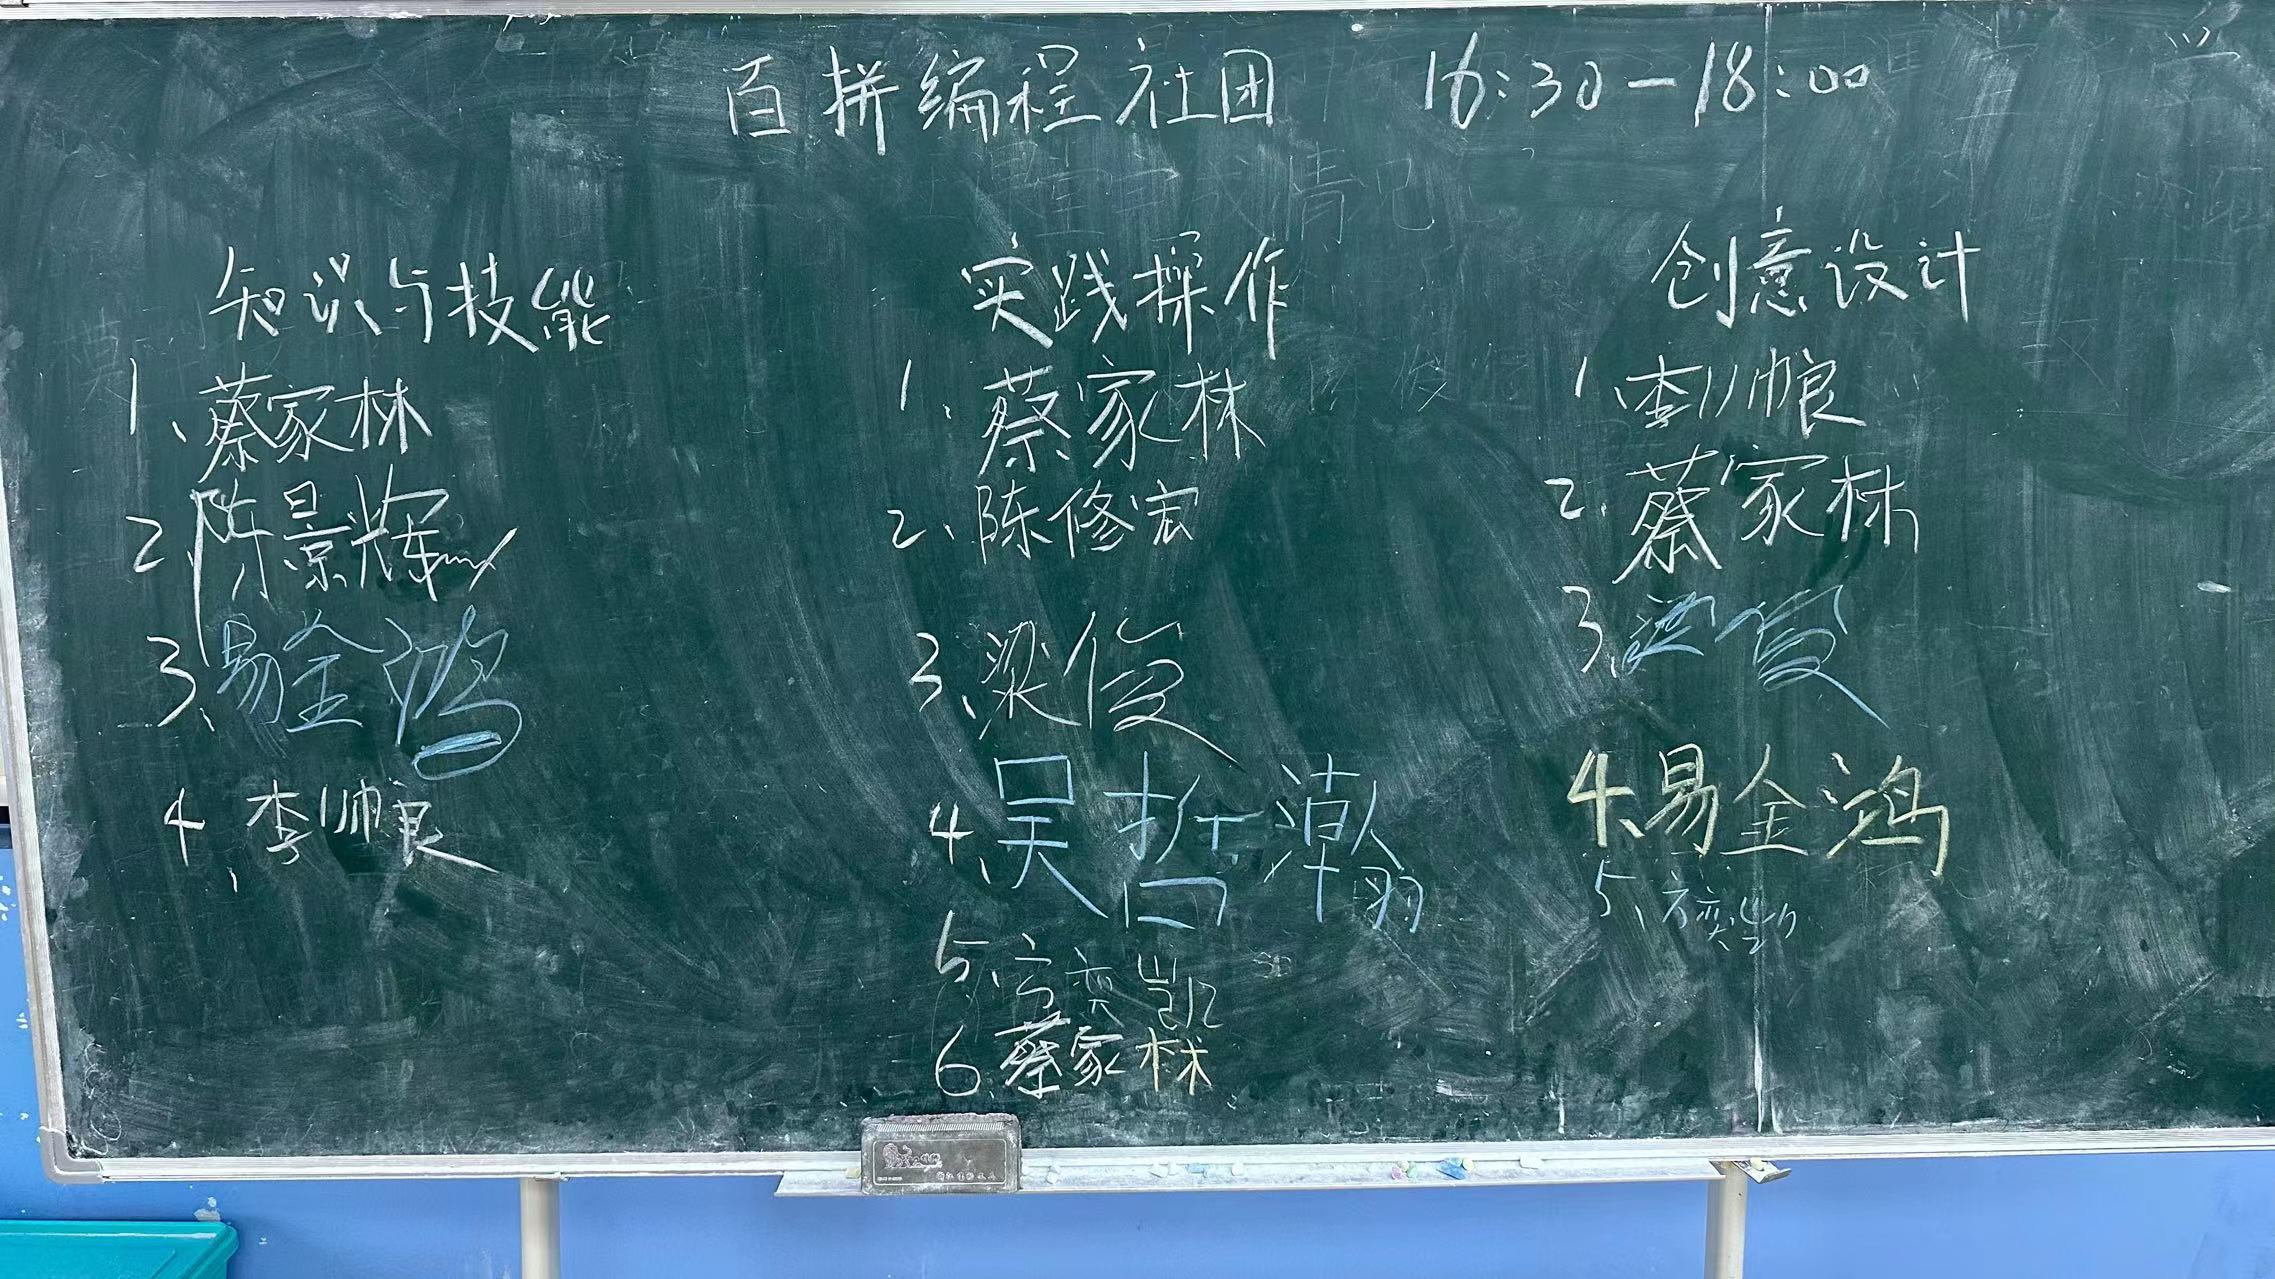 百拼编程社团 16:30-18:00
知识与技能
1、蔡家林
2、陈景辉
3、易全鸿
4、李帅良
实践操作
1、蔡家林
2、陈修宏
3、梁俊
4、吴哲瀚
5、方奕凯
6、蔡家林
创意设计
1、李帅良
2、蔡家林
3、梁俊
4、易全鸿
5、方奕